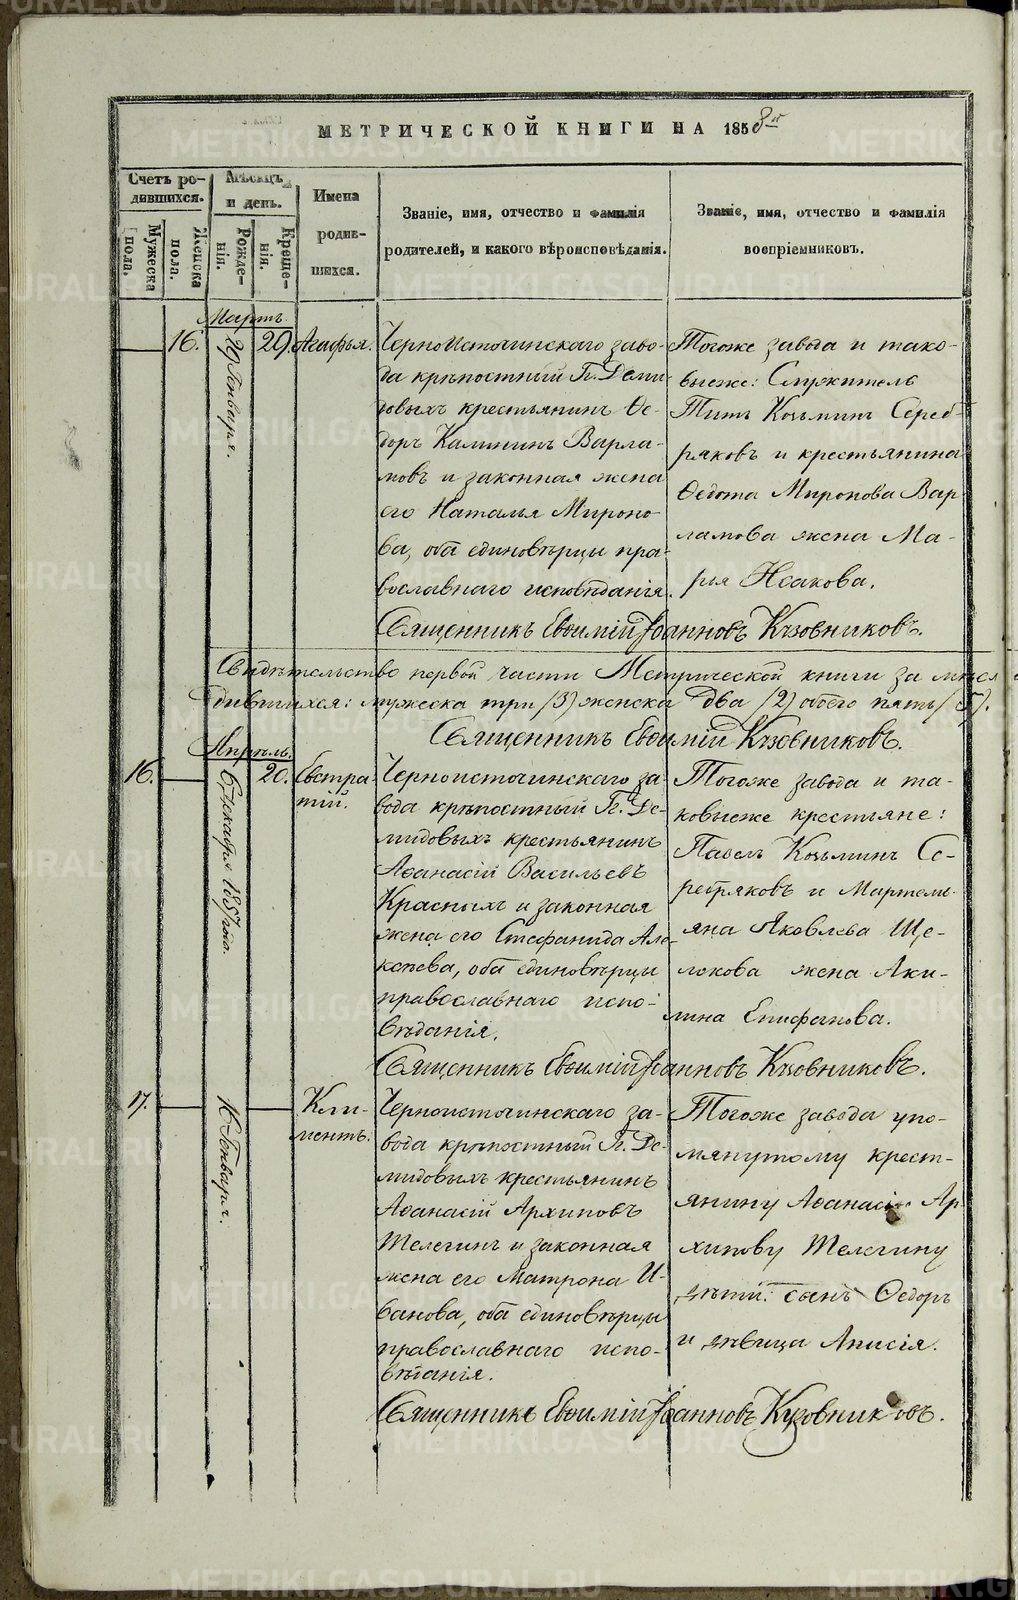 МЕТРИЧЕСКОЙ КНИГИ НА 1858й
Счетъ ро-
дившихся.
Мужеска пола.
Женска пола.
Мѣсяцъ
и день.
Рожде-
нія.
Креще-
нія.
Имена
родив-
шихся.
Званіе, имя, отчество и фамилія
родителей, и какого вѣроисповѣданія.
Званіе, имя, отчество и фамилія
воспріемниковъ.
Мартъ.
16.
29 Генваря.
29.
Агафья.
Черноисточинскаго заво-
да крѣпостный Гг. Деми-
довыхъ крестьянинъ Ѳе-
доръ Калининъ Варла-
мовъ и законная жена
его Наталья Мироно-
ва, оба единовѣрцы пра-
вославнаго исповѣданія.
Тогоже завода и тако-
выеже: Служитель
Титъ Козьминъ Сереб-
ряковъ и крестьянина
Ѳедота Миронова Вар-
ламова жена Ма-
рья Исакова.
Священникъ Евѳимій Іоанновъ Кузовниковъ.
Свидѣтельство первой части Метрической книги за
мужеска три (3) женска два (2) обоего пять (5).
Священникъ Евѳимій Кузовниковъ.
Апрѣль.
16.
6 декабря 1857 года.
20.
Евстра-
тій.
Черноисточинскаго за-
вода крѣпостный Гг. Де-
мидовыхъ крестьянинъ
Аѳанасій Васильевъ
Красныхъ и законная
жена его Стефанида Але-
ксѣева, оба единовѣрцы
православнаго испо-
вѣданія.
Тогоже завода и та-
ковыеже крестьяне:
Павелъ Козьминъ Се-
ребряковъ и Мартемь-
яна Яковлева Ще-
локова жена Аки-
лина Епифанова.
Священникъ Евѳимій Іоанновъ Кузовниковъ.
17.
Генваря.
Кли-
ментъ.
Черноисточинскаго за-
вода крѣпостный Гг. Де-
мидовыхъ крестьянинъ
Аѳанасій Архиповъ
Телегинъ и законная
жена его Матрона И-
ванова, оба единовѣрцы
православнаго испо-
вѣданія.
Тогоже завода упо-
мянутому крест-
янину Аѳанасію Ар-
хипову Телегину
дѣти: сынъ Ѳедоръ
и дѣвица Анисія.
Священникъ Евѳимій Іоанновъ Кузовниковъ.
METRIKI.GASO-URAL.RU